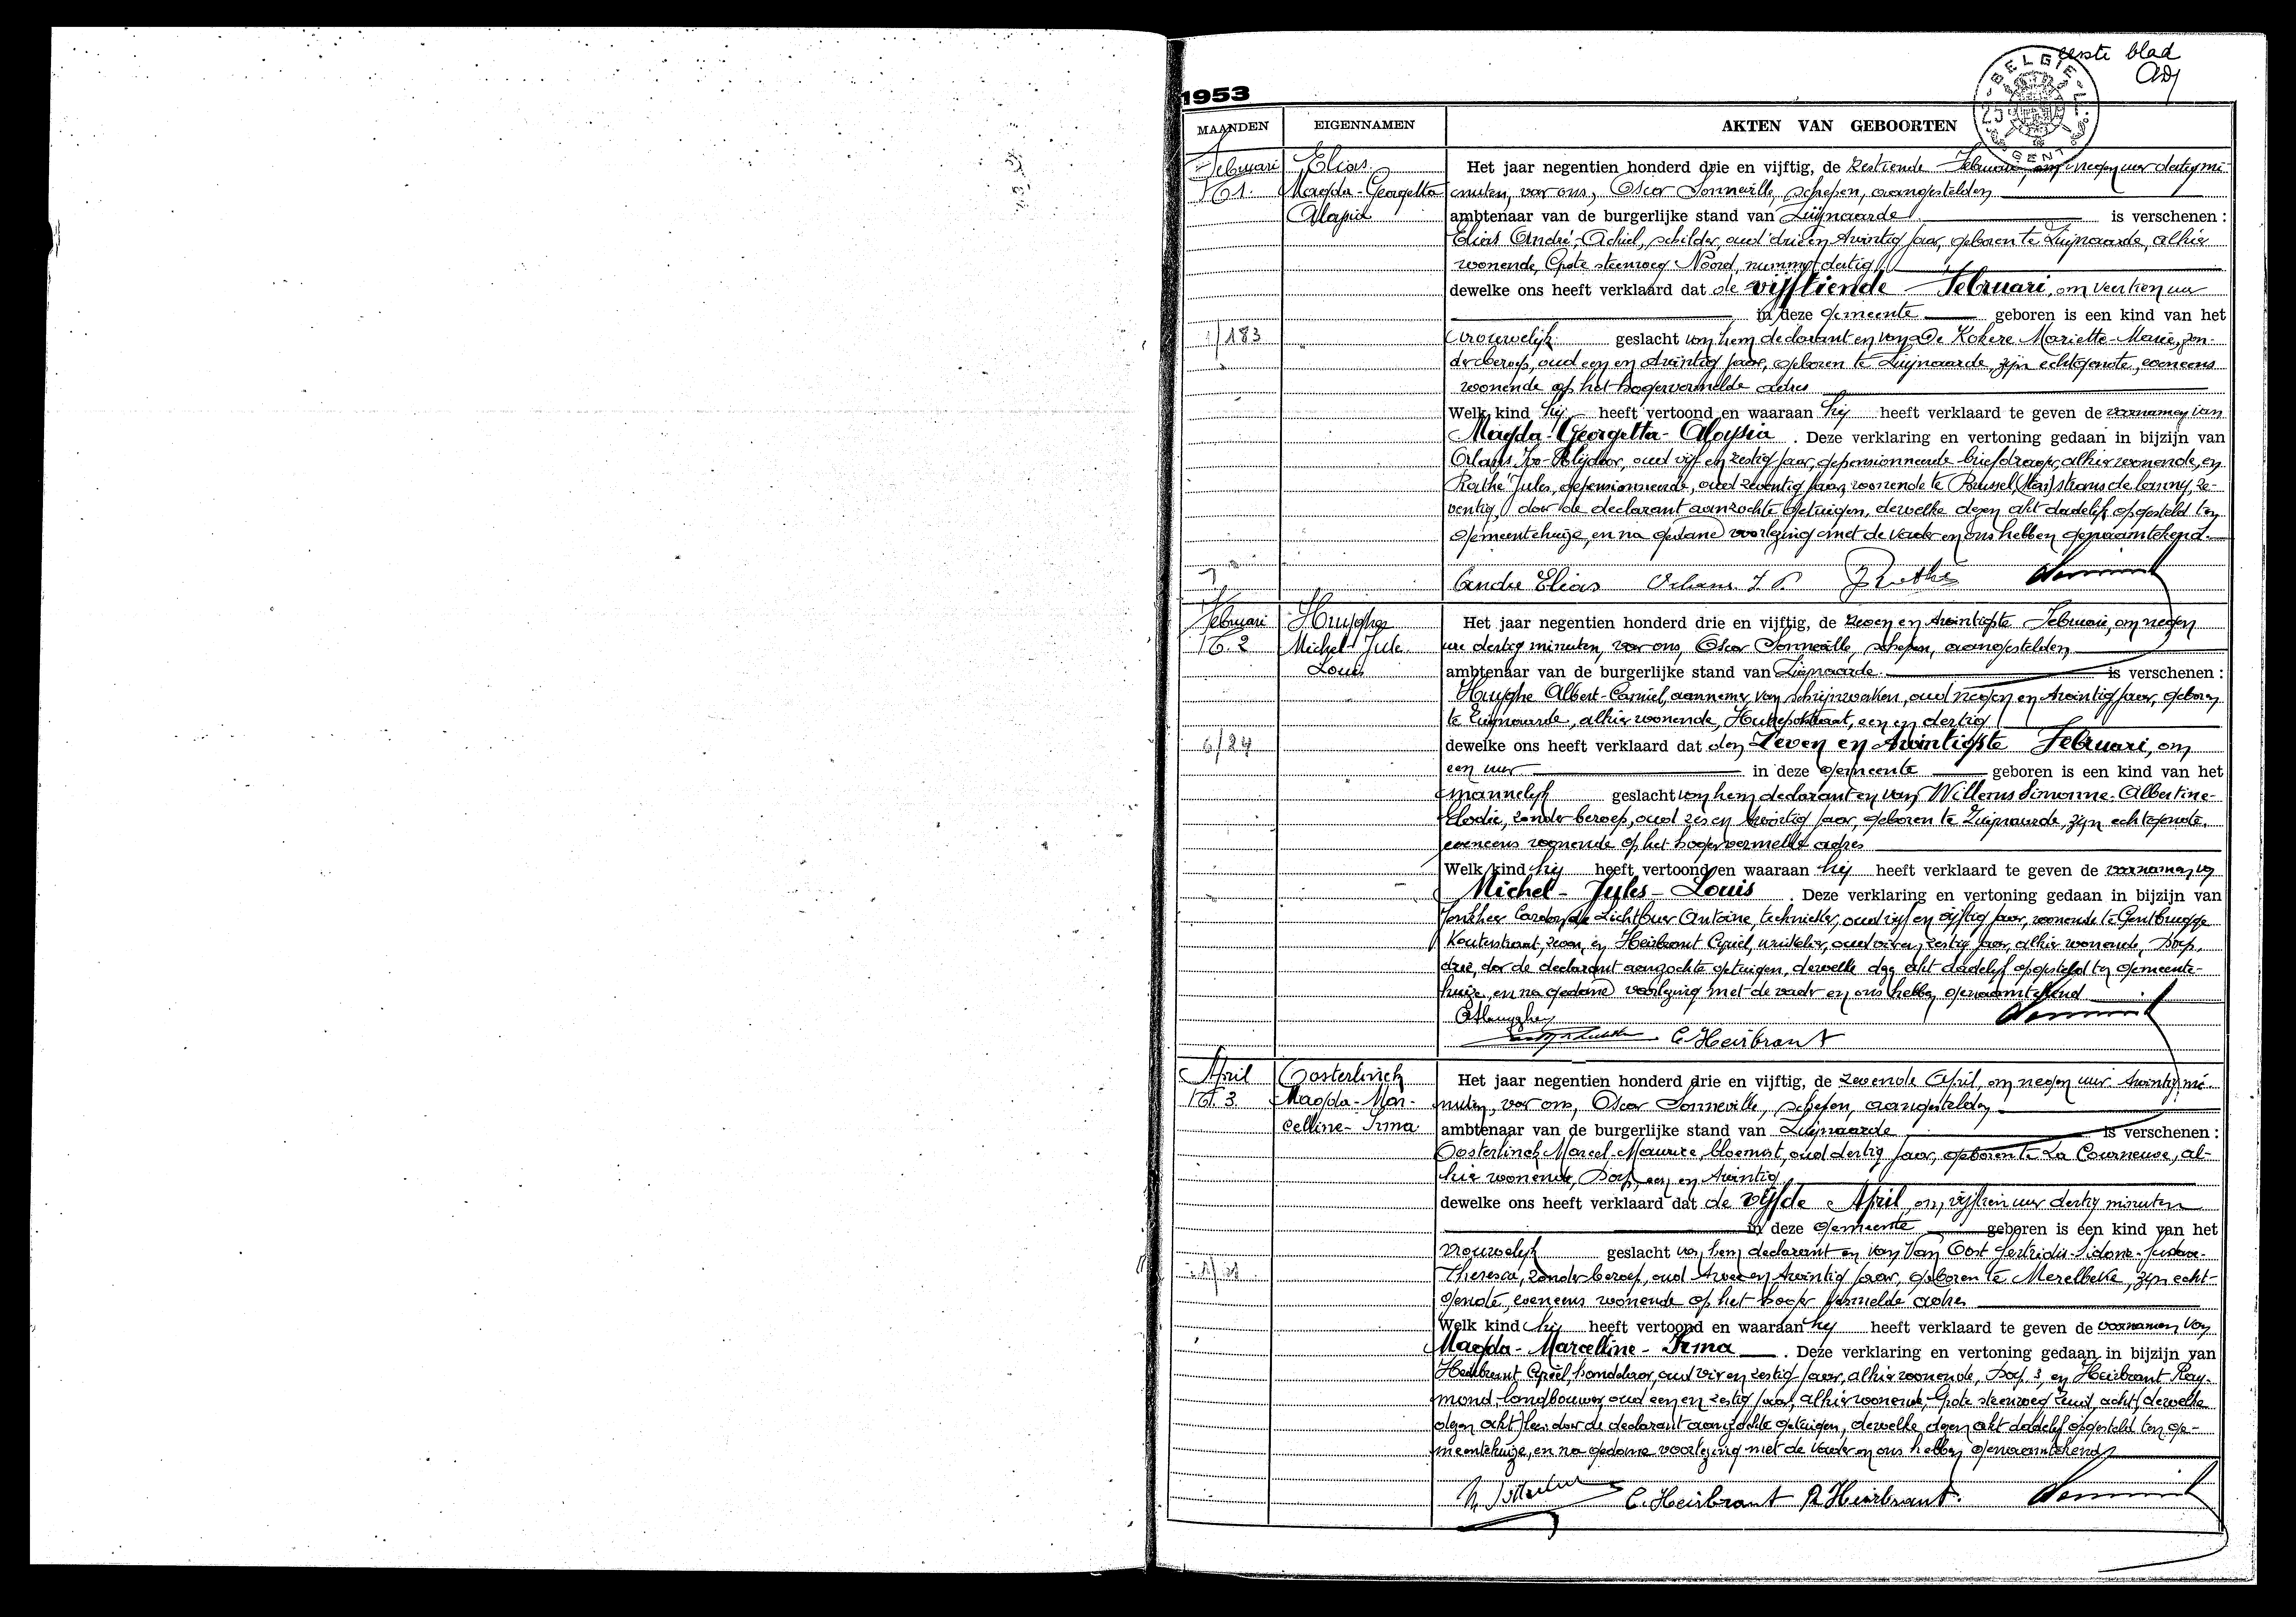 eerste blad
BELGIE
GENT
1953
MAANDEN EIGENNAMEN AKTEN VAN GEBOORTEN
Februari
N. 1.
Elias
Magda-Georgetta
Aloysia
Het jaar negentien honderd drie en vijftig, de zestiende Februari, om negen uur dertig mi-
nuten, voor ons, Oscar Sonneville, schepen, aangestelden
ambtenaar van de burgerlijke stand van Zwijnaarde is verschenen :
Elias André-Achiel, schilder, oud drie en twintig jaar, geboren te Zwijnaarde, alhier
wonende, Grote steenweg Noord, nummer dertig
dewelke ons heeft verklaard dat de vijftiende Februari, om veertien uur
in deze gemeente geboren is een kind van het
1/183
vrouwelijk geslacht van hem declarant en van De Kokere Mariette-Marie, zon-
der beroep, oud een en twintig jaar, geboren te Zwijnaarde, zijn echtgenote, eveneens
wonende op het hogervermelde adres
Welk kind hij heeft vertoond en waaraan hij heeft verklaard te geven de voornamen van
Magda-Georgetta-Aloysia. Deze verklaring en vertoning gedaan in bijzijn van
Orlans Ivo, oud vijf en zestig jaar, gepensionneerde briefdrager, alhier wonende, en
Rathé Jules, gepensionneerde, oud zeventig jaar, wonende te Brussel, ze-
ventig, door de declarant aanzochte getuigen, dewelke dezen akt dadelijk opgesteld ten
gemeentehuize, en na gedane voorlezing met de vader en ons hebben genaamtekend.
Andre Elias
Februari
N. 2
Huyghe
Michel-Jules
Louis
Het jaar negentien honderd drie en vijftig, de zeven en twintigste Februari, om negen
ure dertig minuten, voor ons, Oscar Sonneville, schepen, aangestelden
ambtenaar van de burgerlijke stand van Zwijnaarde is verschenen :
Huyghe Albert-Camiel, aannemer van schrijnwerken, oud negen en twintig jaar, geboren
te Zwijnaarde, alhier wonende, Hutsepotstraat, een en dertig
dewelke ons heeft verklaard dat den Zeven en twintigste Februari, om
een uur in deze gemeente geboren is een kind van het
6/24
mannelijk geslacht van hem declarant en van Willems Simonne-Albertine-
Elodie, zonder beroep, oud zes en twintig jaar, geboren te Zwijnaarde, zijn echtgenote,
eveneens wonende op het hogervermelde adres
Welk kind hij heeft vertoond en waaraan hij heeft verklaard te geven de voornamen van
Michel-Jules-Louis. Deze verklaring en vertoning gedaan in bijzijn van
Jonkheer de Lichtbuer Antoine, technieker, oud vijf en vijftig jaar, wonende te Gentbrugge
Kouterstraat, en Heirbrant Cyriel, winkelier, oud vier en zestig jaar, alhier wonende, Dorp,
drie, door de declarant aanzochte getuigen, dewelke dezen akt dadelijk opgesteld ten gemeente-
huize, en na gedane voorlezing met de vader en ons hebben genaamtekend
C. Heirbrant
April
N. 3.
Oosterlinck
Magda-Mar-
celline-Irma
Het jaar negentien honderd drie en vijftig, de zevende April, om negen uur twintig mi-
nuten, voor ons, Oscar Sonneville, schepen, aangestelden
ambtenaar van de burgerlijke stand van Zwijnaarde is verschenen :
Oosterlinck Marcel-Maurice, bloemist, oud dertig jaar, geboren te La Courneuve, al-
hier wonende, Dorp, een en twintig
dewelke ons heeft verklaard dat de vijfde April, om vijftien uur dertig minuten
in deze gemeente geboren is een kind van het
vrouwelijk geslacht van hem declarant en van Van Oost
Theresia, zonder beroep, oud twee en twintig jaar, geboren te Merelbeke, zijn echt-
genote, eveneens wonende op het hoger vermelde adres
Welk kind hij heeft vertoond en waaraan hij heeft verklaard te geven de voornamen van
Magda-Marcelline-Irma. Deze verklaring en vertoning gedaan in bijzijn van
Heirbrant Cyriel, handelaar, oud vier en zestig jaar, alhier wonende, Dorp 3, en Heirbrant Ray-
mond, landbouwer, oud een en zestig jaar, alhier wonende, Grote steenweg Zuid, acht (dewelke
dezen akt) door de declarant aanzochte getuigen, dewelke dezen akt dadelijk opgesteld ten ge-
meentehuize, en na gedane voorlezing met de vader en ons hebben genaamtekend
C. Heirbrant R. Heirbrant.